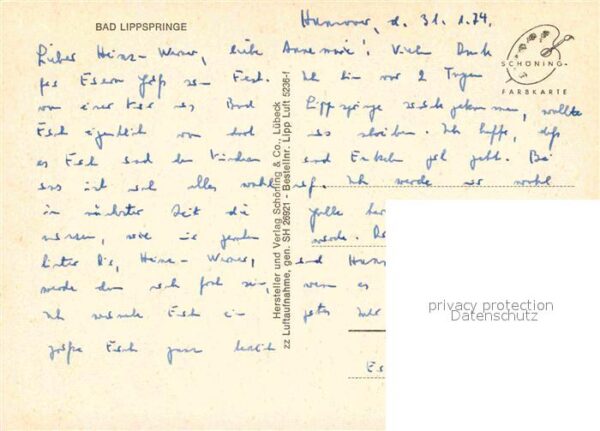 BAD LIPPSPRINGE
Hannover, d. 31.1.74.
Lieber Heinz-Werner, liebe Annemarie! Vielen Dank
für Euren Gruß zum Fest. Ich bin vor 2 Tagen
von einer Kur aus Bad Lippspringe zurückgekommen, wollte
Euch eigentlich von dort aus schreiben. Ich hoffe, daß
es Euch und den Kindern und Enkeln gut geht. Bei
uns ist auch alles wohlauf. Ich werde mir wohl
in nächster Zeit die Galle
müssen, wie werde.
lieber Heinz-Werner, und
werde dann auch froh sein, wenn es
Ich wünsche Euch ein gutes
grüße Euch ganz herzlich
SCHÖNING
FARBKARTE
Hersteller und Verlag Schöning & Co., Lübeck
zz Luftaufnahme, gen. SH 26921 - Bestellnr. Lipp Luft 5236-f
privacy protection
Datenschutz